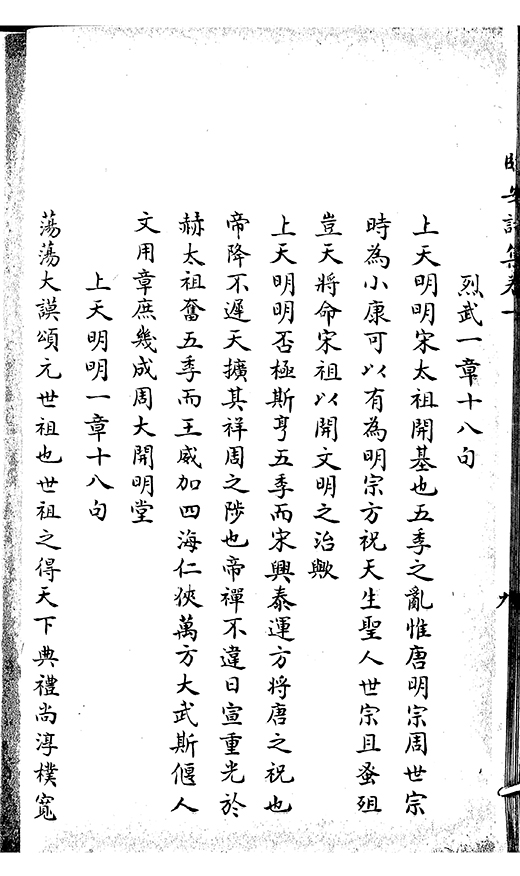 臥雲詩集卷一
烈武一章十八句
上天明明宋太祖開基也五季之亂惟唐明宗周世宗
時為小康可以有為明宗方祝天生聖人世宗且蚤殂
豈天將命宋祖以開文明之治歟
上天明明否極斯亨五季而宋興泰運方將唐之祝也
帝降不遲天擴其祥周之陟也帝禪不違日宣重光於
赫太祖奮五季而王威加四海仁狹萬方大武斯偃人
文用章庶幾成周大開明堂
上天明明一章十八句
蕩蕩大謨頌元世祖也世祖之得天下典禮尚淳樸寬